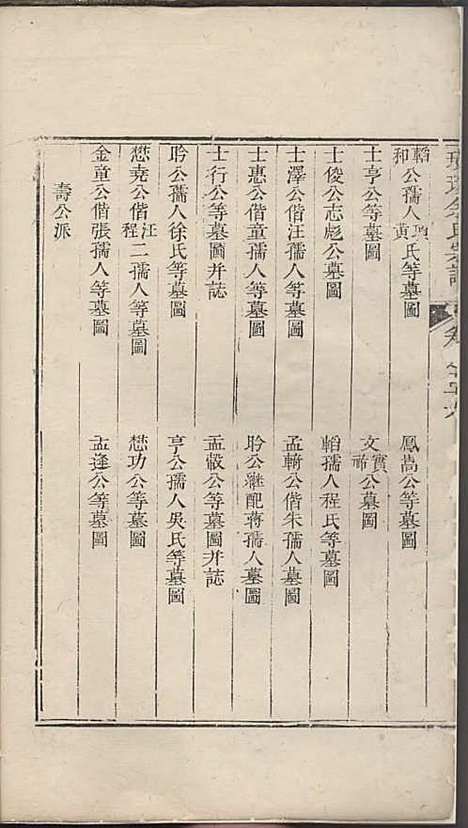 韜和公孺人項黃氏等墓圖　鳳嵩公等墓圖
士亨公等墓圖　文賓公墓圖
士俊公志彪公墓圖　韜孺人程氏等墓圖
士澤公偕汪孺人等墓圖　孟輗公偕朱孺人墓圖
士惠公偕童孺人等墓圖　聆公繼配蔣孺人墓圖
士行公等墓圖并誌　孟轂公等墓圖并誌
聆公孺人徐氏等墓圖　亨公孺人吳氏等墓圖
懋堯公偕汪程二孺人等墓圖　懋功公等墓圖
金童公偕張孺人等墓圖　孟逢公等墓圖
壽公派